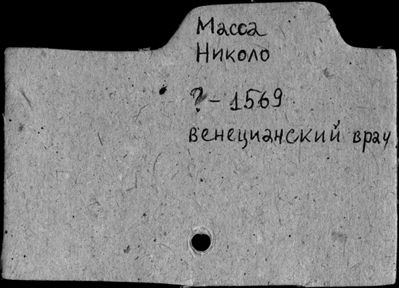 Масса
Николо
? – 1569
венецианский врач